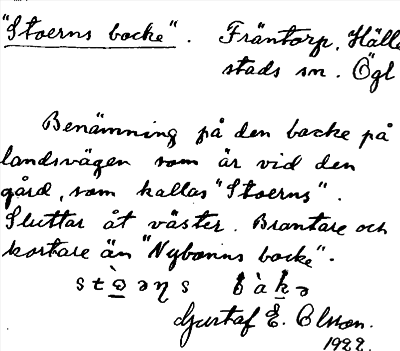 "Stoerns backe". Fräntorp, Hälle-
stads sn. Ögl
Benämning på den backe på
landsvägen som är vid den
gård, som kallas "Stoerns".
Sluttar åt väster. Brantare och
kortare än "Nybonns backe".
Gustaf E. Olsson.
1922.